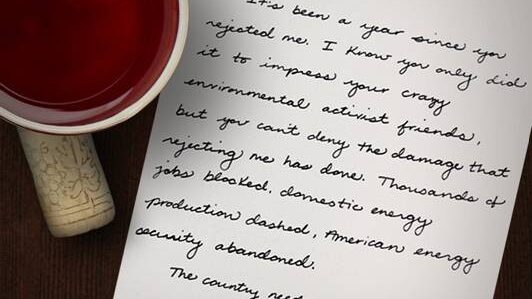 It's been a year since you
rejected me. I know you only did
it to impress your crazy
environmental activist friends,
but you can't deny the damage that
rejecting me has done. Thousands of
jobs blocked, domestic energy
production dashed, American energy
security abandoned.
The country